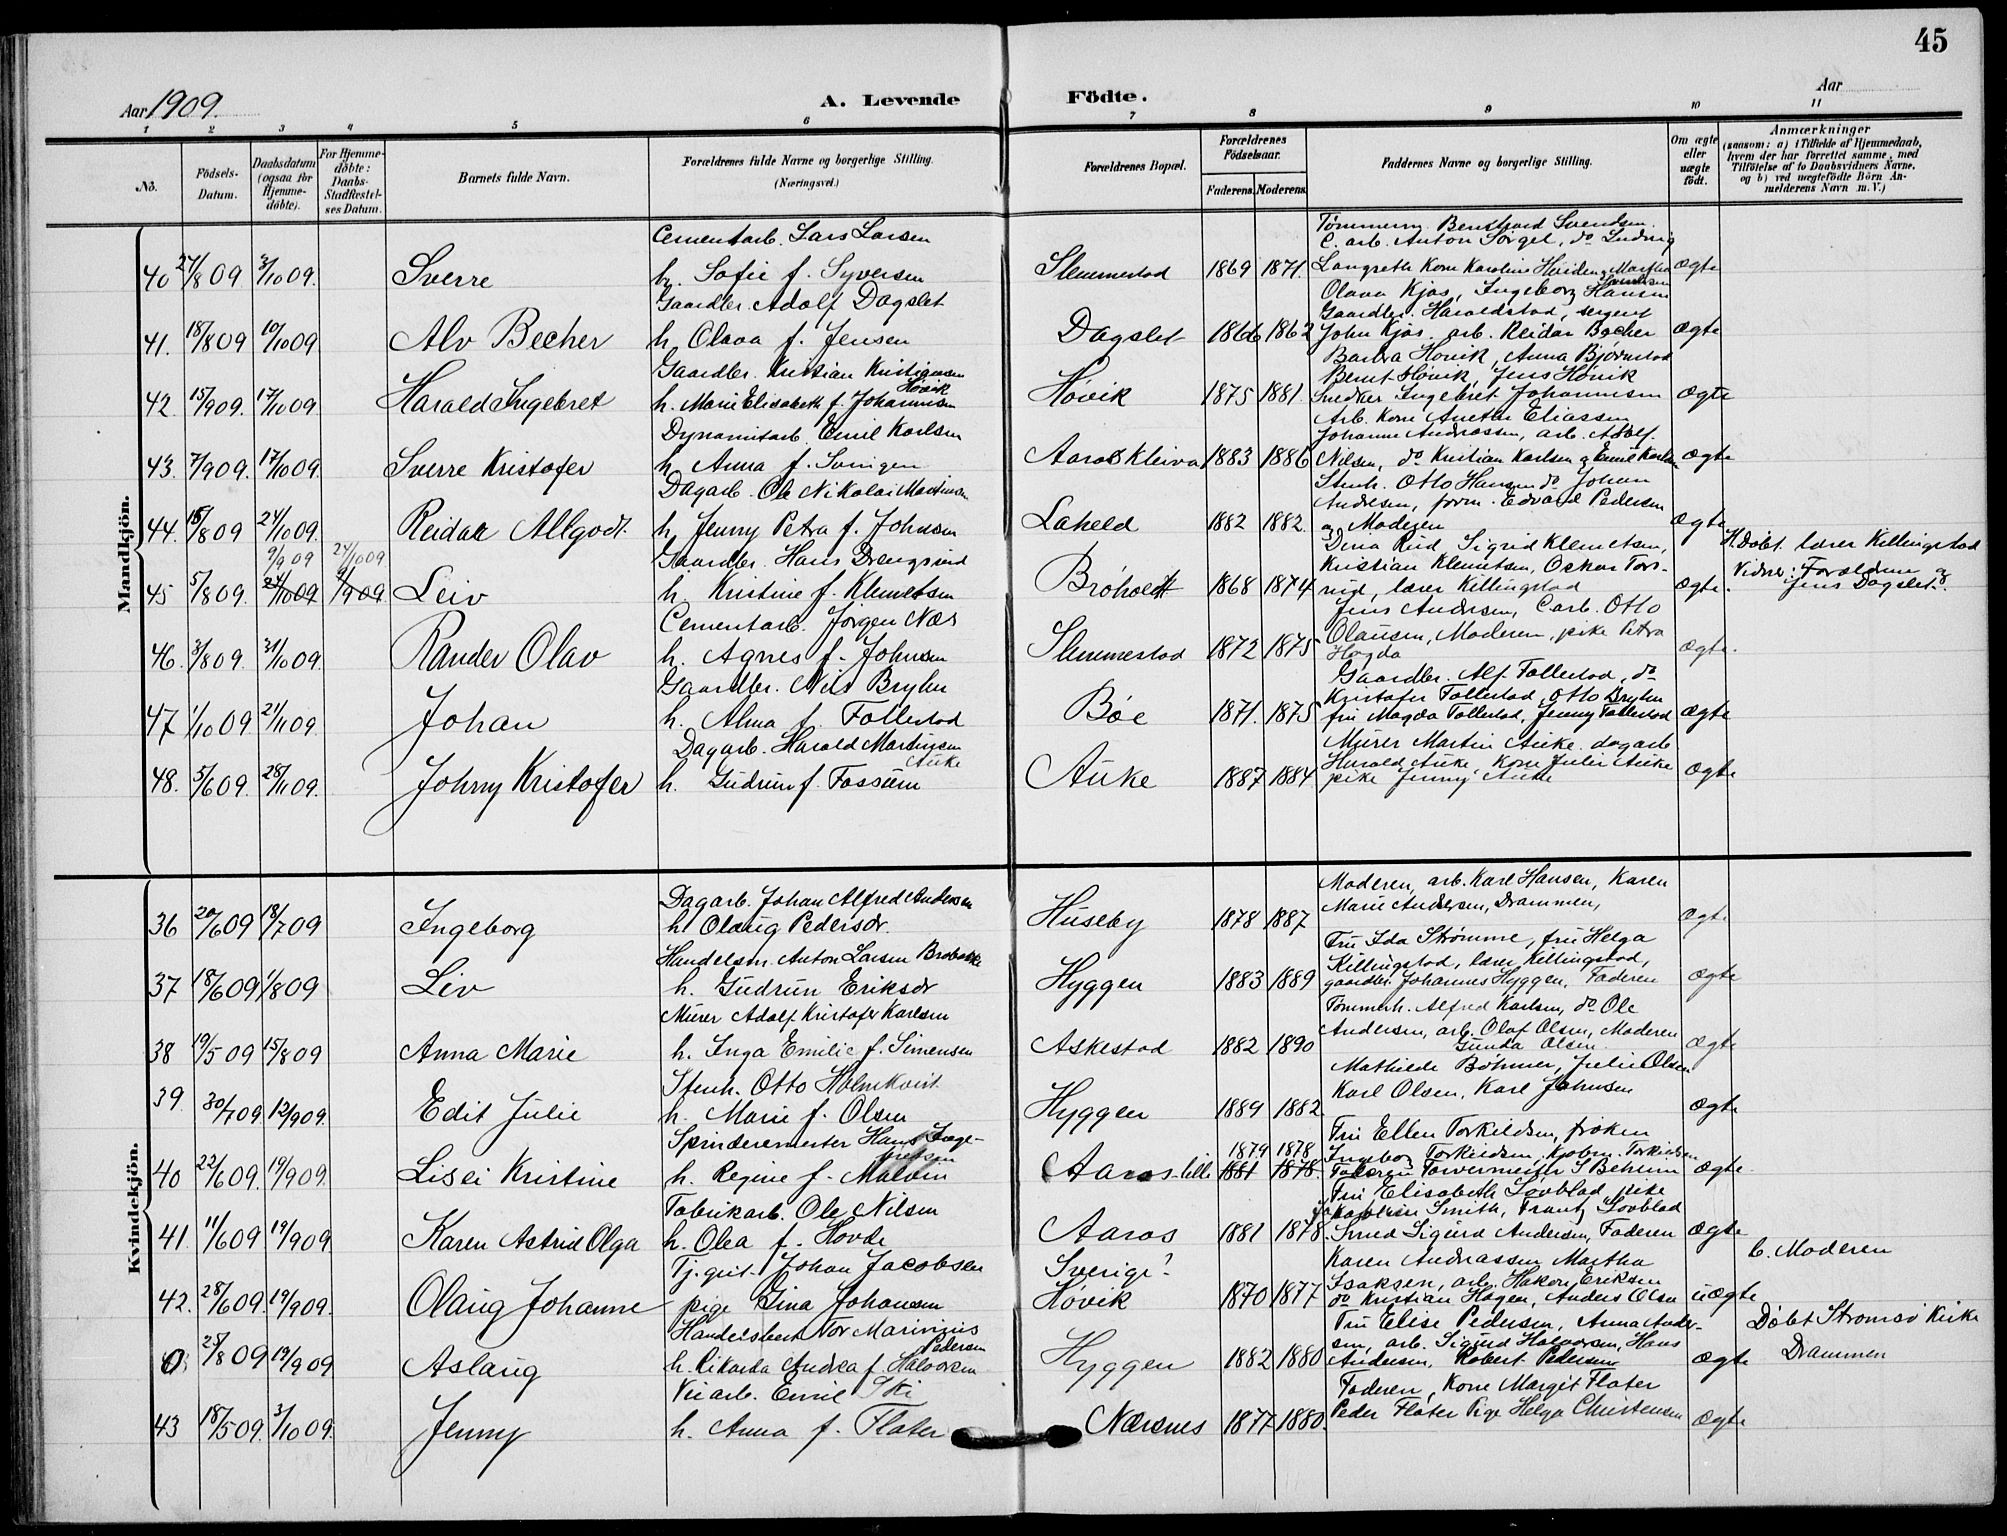 45
Aar 1909.
A. Levende Födte.
Aar
1 2 3 4 5 6 7 8 9 10 11
No.
Födsels-Datum.
Daabsdatum (ogsaa for Hjemme-döbte).
For Hjemme-döbte: Daabs-Stadfæstel-ses Datum.
Barnets fulde Navn.
Forældrenes fulde Navne og borgerlige Stilling. (Næringsvei.)
Forældrenes Bopæl.
Forældrenes Födselsaar.
Faderens. Moderens.
Faddernes Navne og borgerlige Stilling.
Om ægte eller uægte födt.
Anmærkninger
(saasom: a) i Tilfælde af Hjemmedaab, hvem der har forrettet samme, med Tilföielse af to Daabsvidners Navne, og b) ved uægtefödte Börn An-melderens Navn m. V.)
Mandkjön.
Cementarb. Lars Larsen
Tømmerm. Bernthard Svendsen
C. arb. Anton Sørgel, do Ludvig
40 27/8 09 3/10 09. Sverre h. Sofie f. Syversen Slemmestad 1869 1871. Langreth Kone Karoline Heiden & Martha Svendsen ægte
Gaardbr. Adolf Dagslet
Olava Kjøs, Ingeborg Hansen
Gaardbr. Haroldstad, sergent
41. 18/8 09 10/10 09 Alv Becher h. Olava f. Jensen Dagslet 1866 1862 John Kjøs. arb. Reidar Becher ægte
Gaardbr. Kristian Kristiansen Høvik
Barbra Hovik, Anna Bjørnstad
Bernt Høvik, Jens Høvik
42. 15/9 09. 17/10 09 Harald Ingebret h. Marie Elisabeth f. Johannesen Høvik 1875 1881. Snedker Ingebret Johannesen ægte
Dynamitarb. Emil Karlsen
Arb. Kone Anethe Eliassen
Johanne Andreassen, arb. Adolf
43. 7/9 09. 17/10 09. Sverre Kristofer h. Anna f. Svingen Aaros Kleiva 1883 1886 Nilsen, do Kristian Karlsen & Emil Karlsen ægte
Dagarb. Ole Nikolai Martinsen
Stenh. Otto Hansen do Johan
Andresen, form. Edvard Pedersen
44. 15/8 09 24/10 09. Reidar Allgodt. h. Jenny Petra f. Johnsen Laheld 1882 1882. og Moderen ægte
9/9 09 24/10 09
Gaardbr. Hans Drengsrud
Dina Rud, Sigrid Klemetsen,
Kristian Klemetsen, Oskar Tors-
H. Døbt. lærer Killingstad
45 5/8 09. 24/10 09 9/9 09 Leiv h. Kristine f. Klemetsen Brøholdt 1868 1874 rud, lærer Killingstad ægte. Vidner: Foreldrene og Jens Dagslet.
Cementarb. Jørgen Næs
Jens Andersen, C arb. Otto
Olausen, Moderen, pike Petra
46. 3/8 09. 31/10 09. Rander Olav h. Agnes f. Johnsen Slemmestad 1872 1875 Høgda ægte.
Gaardbr. Nils Bryhn
Gaardbr. Alf. Follestad, do
Kristofer Follestad, Otto Bryhn
47 1/10 09 21/11 09 Johan h. Alma f. Follestad Bøe 1871. 1875 fru Magda Follestad, Jenny Follestad ægte
Dagarb. Harald Martinsen Auke
Murer Martin Auke. dagarb
Harald Auke, Kone Julie Auke
48. 5/6 09. 28/11 09. Johny Kristofer h. Gudrun f. Fossum Auke 1887 1884 pike Jenny Auke ægte
Kvindekjön.
Dagarb. Johan Alfred Andersen
Moderen, arb. Karl Hansen, Karen
Marie Andersen, Drammen,
36 20/6 09 18/7 09 Ingeborg h. Olaug Pedersdr. Huseby 1878 1887 ægte
Handelsm. Anton Larsen Brobakke
Fru Ida Strømme, fru Helga
Killingstad, lærer Killingstad,
37 18/6 09 1/8 09 Liv h. Gudrun Eriksdr Hyggen 1883 1889 gaardbr. Johannes Hyggen, Faderen ægte
Murer Adolf Kristofer Karlsen
Tømmerh. Alfred Karlsen, do Ole
Andersen, arb. Olaf Olsen, Moderen
38 19/5 09 15/8 09 Anna Marie h. Inga Emilie f. Simensen Askestad 1882 1890 Gunda Olsen ægte
Stenh. Otto Holmkvist
Mathilde Böhmer, Julie Olsen
39 30/7 09 12/9 09. Edit Julie h. Marie f. Olsen Hyggen 1889 1882. Karl Olsen, Karl Johnsen ægte
Spinderemester Hans Inge-bretsen
Fru Ellen Torkildsen, frøken
1879 1878 Ingebor Torkildsen, Kjøbm. Torkildsen
40 22/6 09. 19/9 09. Lisei Kristine h. Regine f. Malvin Aaros lille 1881 1878. Faderen Farvermester S Behum ægte
Fabrikarb. Ole Nilsen
Fru Elisabeth Løvblad, pike
Jakobine Smith, Frantz Løvblad
41 11/6 09 19/9 09. Karen Astrid Olga h. Olea f. Hovde Aaros 1881 1878. Smed Sigurd Andersen, Faderen ægte
Tj. gut. Johan Jacobsen Sverige?
Karen Andreassen Martha
b. Moderen
Isaksen, arb. Hakon Eriksen
42. 28/6 09. 19/9 09. Olaug Johanne pige Gina Johansen Høvik 1870 1877 do Kristian Hagen, Anders Olsen uægte
Handelsbest Tor Marinius Pedersen
Fru Elise Pedersen, Anna Ander-
Døbt Strømsø Kirke
sen, arb. Sigurd Halvorsen, Hans
0. 25/8 09 19/9 09 Aslaug h. Rikarda Andrea f. Halvorsen Hyggen 1882 1880 Andersen, Robert Pedersen ægte Drammen
Veiarb. Emil Ski
Faderen, Kone Margit Flater
43 18/5 09. 3/10 09. Jenny h. Anna f. Flater Nærsnes 1877 1880. Peder Flater Pige Helga Christensen ægte